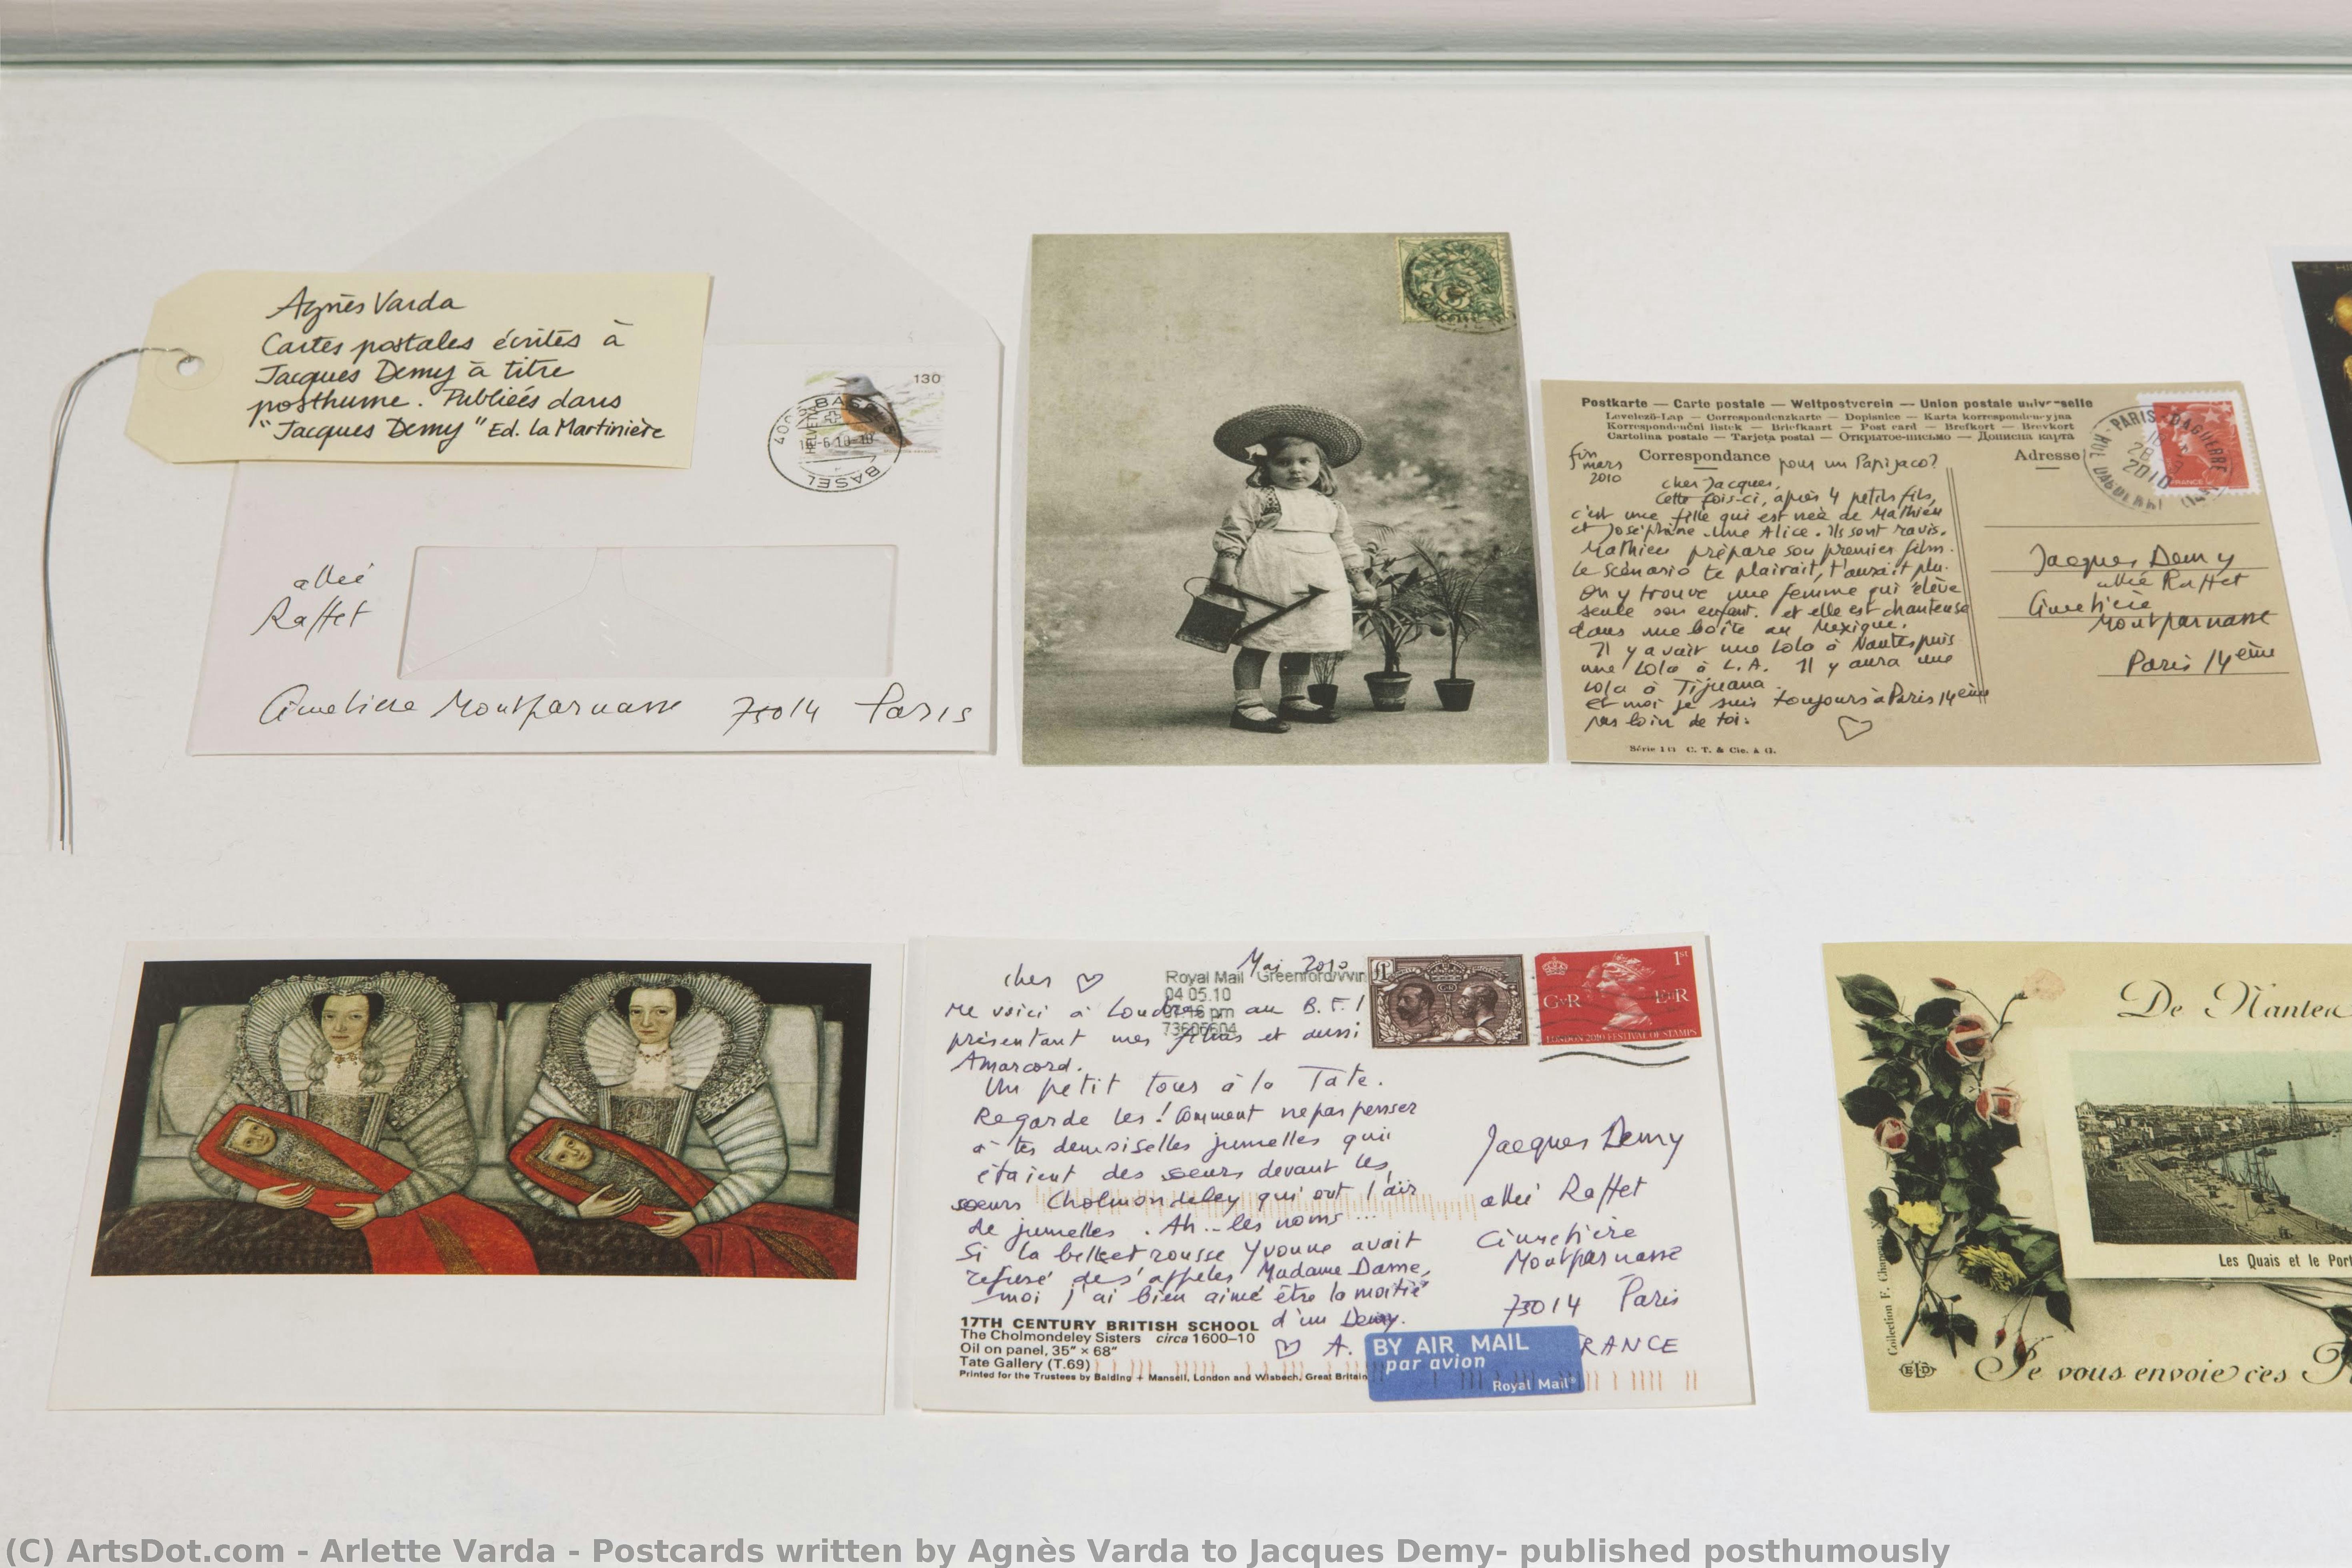 Agnès Varda
Cartes postales écrites à
Jacques Demy à titre
posthume. Publiées dans
"Jacques Demy" Ed. la Martinière
130
HELVETIA
BASEL
BASEL
allée
Raffet
Cimetière Montparnasse 75014 Paris
Postkarte — Carte postale — Weltpostverein — Union postale universelle
Levelező-Lap — Correspondenzkarte — Dopisnice — Karta korrespondencyjna
Korrespondenční listek — Briefkaart — Post card — Brefkort — Brevkort
Cartolina postale — Tarjeta postal — Открытое-письмо — Дописна карта
fin
mars
2010
Correspondance pour un Papijaco?
cher Jacques,
Cette fois-ci, après 4 petits fils,
c'est une fille qui est née de Mathieu
et Joséphine. Une Alice. Ils sont ravis.
Mathieu prépare son premier film.
Le scénario te plairait, t'aurait plu.
On y trouve une femme qui élève
seule son enfant. et elle est chanteuse
dans une boîte au Mexique.
Il y avait une Lola à Nantes puis
une Lola à L.A. Il y aura une
Lola à Tijuana.
et moi je suis toujours à Paris 14ème
pas loin de toi.
Série 113 C. T. & Cie. à G.
Adresse
PARIS-DAGUERRE
2010
FRANCE
Jacques Demy
allée Raffet
Cimetière
Montparnasse
Paris 14ème
Mai 2010
cher ♡
Royal Mail Greenford/
04.05.10
07:16 pm
73606604
Me voici à Londres, au B.F.I
présentant mes films et aussi
Amarcord.
Un petit tour à la Tate.
Regarde les! Comment ne pas penser
à tes demoiselles jumelles qui
étaient des soeurs devant les
soeurs Cholmondeley qui ont l'air
de jumelles. Ah... les noms...
Si la belle et rousse Yvonne avait
refusé de s'appeler Madame Dame,
moi j'ai bien aimé être la moitié
d'un Demy.
♡ A.
17TH CENTURY BRITISH SCHOOL
The Cholmondeley Sisters circa 1600–10
Oil on panel, 35" × 68"
Tate Gallery (T.69)
Printed for the Trustees by Balding + Mansell, London and Wisbech, Great Britain
£1
1st
GvR EiiR
LONDON 2010 FESTIVAL OF STAMPS
Jacques Demy
allée Raffet
Cimetière
Montparnasse
75014 Paris
FRANCE
BY AIR MAIL
par avion
Royal Mail
De Nantes
Les Quais et le Port
Collection F. Chapeau,
ELD
Je vous envoie ces
(C) ArtsDot.com - Arlette Varda - Postcards written by Agnès Varda to Jacques Demy- published posthumously